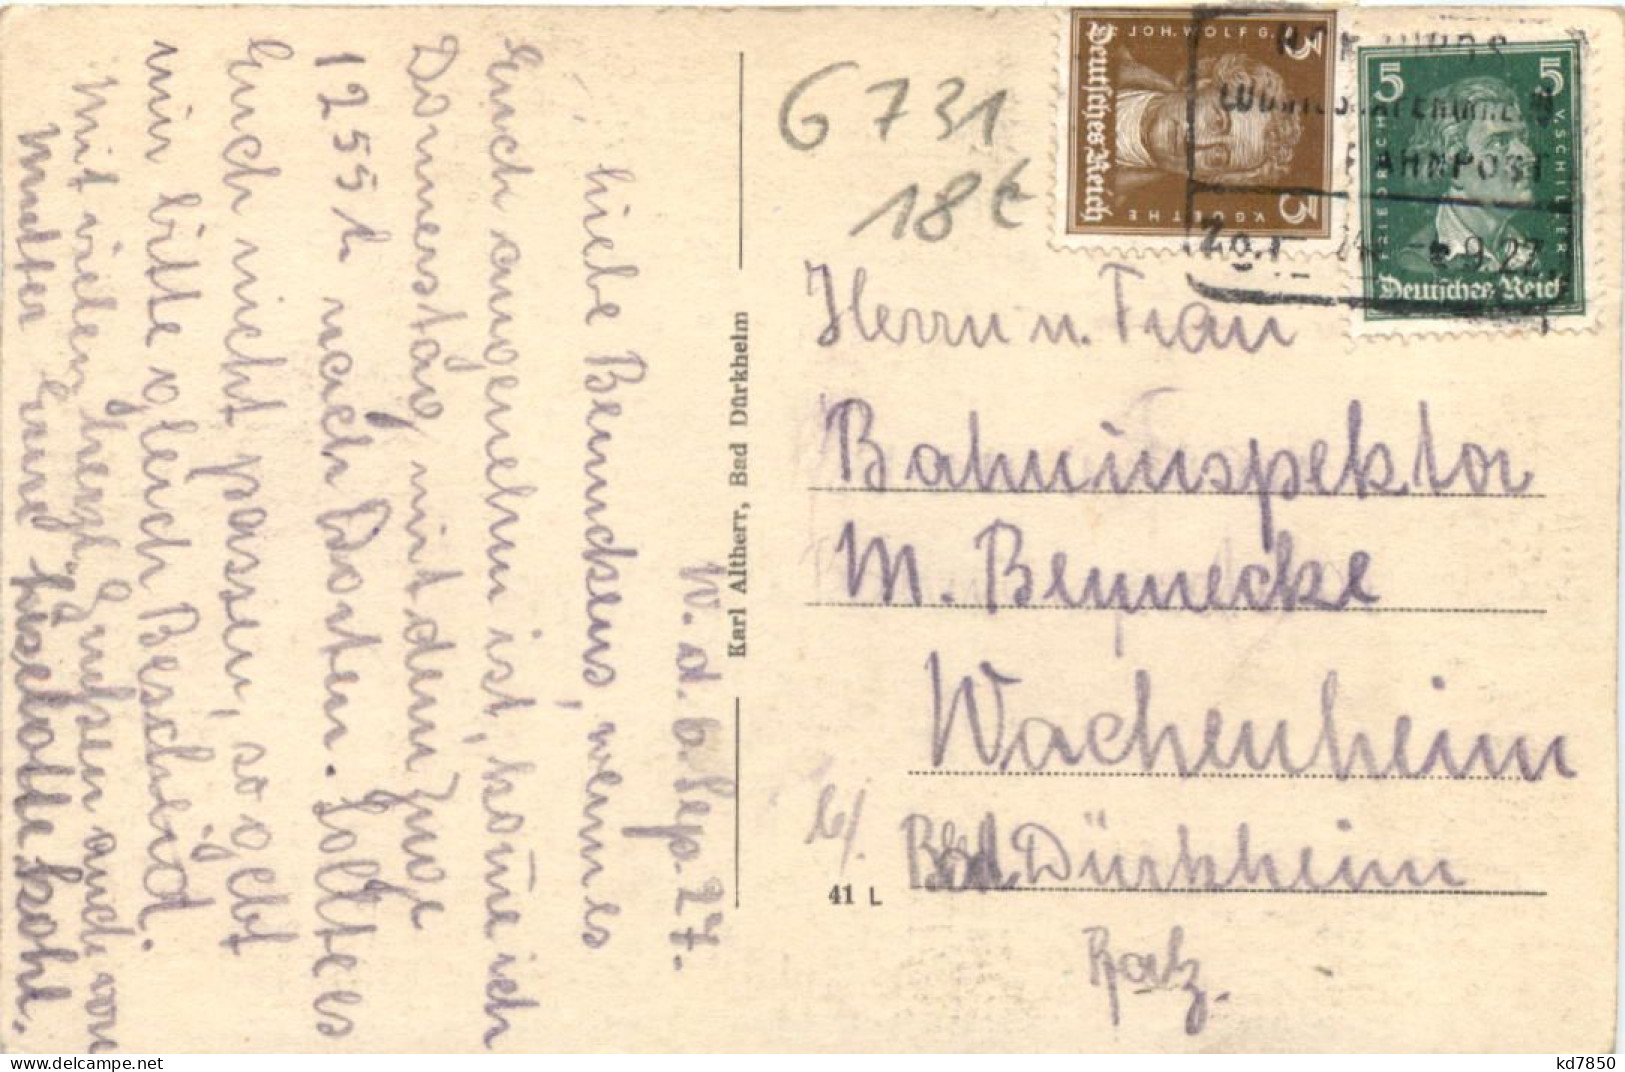 W. d. 6. Sep. 27.
Liebe Bennekens, wenn es
Euch angenehm ist, kom̄e ich
Donnerstag mit dem Zuge
12 55 h nach Dorten. Sollte es
Euch nicht passen, so gebt
mir bitte gleich Bescheid.
Mit vielen herzl. Grüßen auch von
Mutter Eure Liselotte Kohl.
Karl Altherr, Bad Dürkheim
41 L
G 731
18 €
JOH. WOLFG.
V. GOETHE
Deutsches Reich
3
3
5
5
FRIEDRICH
V. SCHILLER
Deutsches Reich
BAHNPOST
9.27
Herrn u. Frau
Bahninspektor
M. Beynecke
Wachenheim
b/. Bad Dürkheim
Pfalz.
kd7850